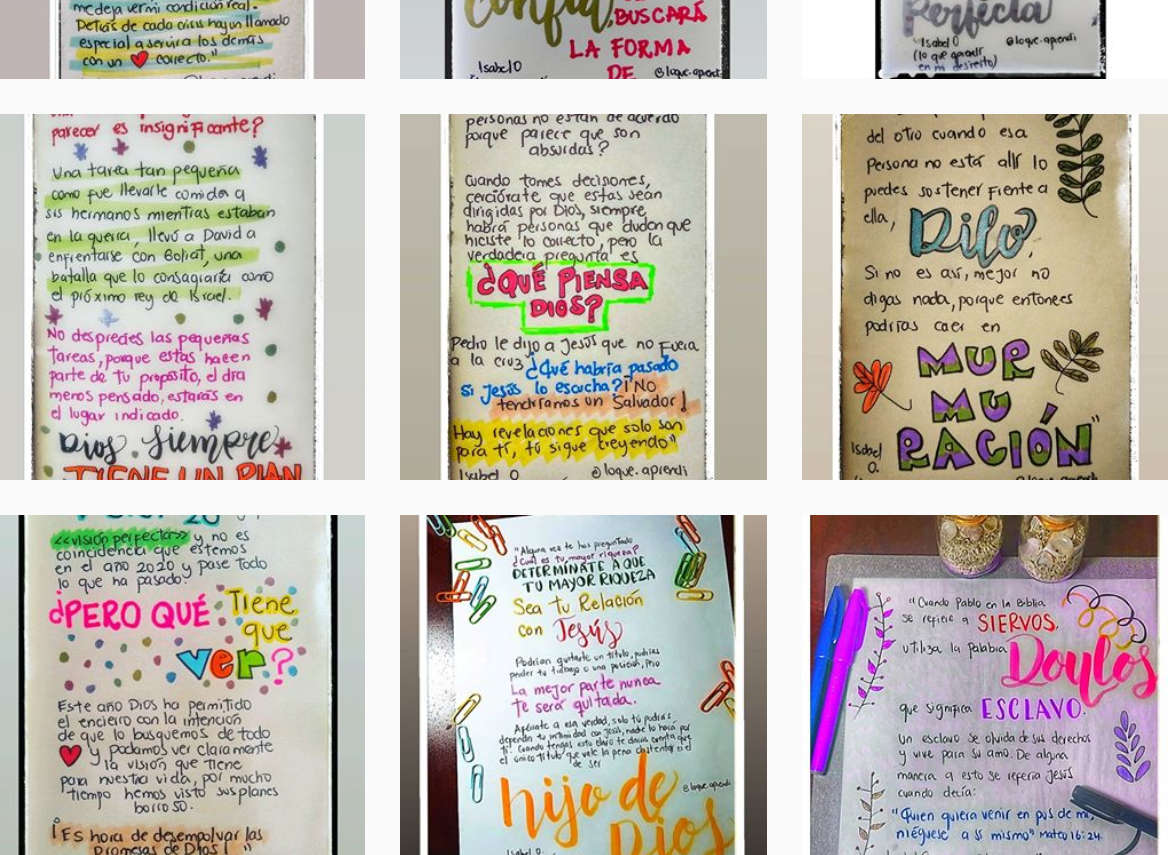 medeja ver mi condición real.
Detrás de cada crisis hay un llamado
especial a servir a los demás
con un correcto."
Confia
BUSCARÁ
LA FORMA
DE
Isabel O
@loque.aprendi
Perfecta
Isabel O
@loque.aprendi
(lo que aprendí
en mi desierto)
parecer es insignificante?
Una tarea tan pequeña
como fue llevarle comida a
sus hermanos mientras estaban
en la guerra, llevó a David a
enfrentarse con Goliat, una
batalla que lo consagraría como
el próximo rey de Israel.
No desprecies las pequeñas
tareas, porque estas hacen
parte de tu propósito, el día
menos pensado, estarás en
el lugar indicado.
Dios siempre
TIENE UN PLAN
personas no están de acuerdo
porque parece que son
absurdas?
Cuando tomes decisiones,
cerciórate que estas sean
dirigidas por Dios, siempre
habrá personas que dudan que
hiciste lo correcto, pero la
verdadera pregunta es
¿QUÉ PIENSA
DIOS?
Pedro le dijo a Jesús que no fuera
a la cruz ¿Qué habría pasado
si Jesús lo escucha? ¡No
tendríamos un Salvador!
Hay revelaciones que solo son
para tí, tú sigue creyendo"
Isabel O.
@loque.aprendi
del otro cuando esa
persona no está allí lo
puedes sostener frente a
ella, Dilo,
Si no es así, mejor no
digas nada, porque entonces
podrías caer en
MUR
MU
RACIÓN"
Isabel
O.
20
<<visión perfecta>> y no es
coincidencia que estemos
en el año 2020 y pase todo
lo que ha pasado.
¿PERO QUÉ Tiene
que
ver?
Este año Dios ha permitido
el encierro con la intención
de que lo busquemos de todo
y podamos ver claramente
la visión que tiene
para nuestra vida, por mucho
tiempo hemos visto sus planes
borroso.
¡Es hora de desempolvar las
promesas de Dios!"
"Alguna vez te has preguntado
¿Cuál es tu mayor riqueza?
DETERMINATE A QUE
TU MAYOR RIQUEZA
Sea tu Relación
con Jesús
Podrían quitarte un título, podrías
perder tu trabajo o una posición, pero
La mejor parte nunca
te será quitada.
Aférrate a esa verdad, solo tú podrás
depende tu intimidad con Jesús, nadie lo hará por
ti. Cuando tengas esto claro te darás cuenta que
el único título que vale la pena ostentar es el
de ser
hijo de
Dios
@loque.aprendi
Isabel O.
"Cuando Pablo en la Biblia
se refiere a SIERVOS,
utiliza la palabra Doulos
que significa ESCLAVO.
Un esclavo se olvida de sus derechos
y vive para su amo. De alguna
manera a esto se refería Jesús
cuando decía:
"Quien quiera venir en pos de mi,
niéguese a sí mismo" Mateo 16:24